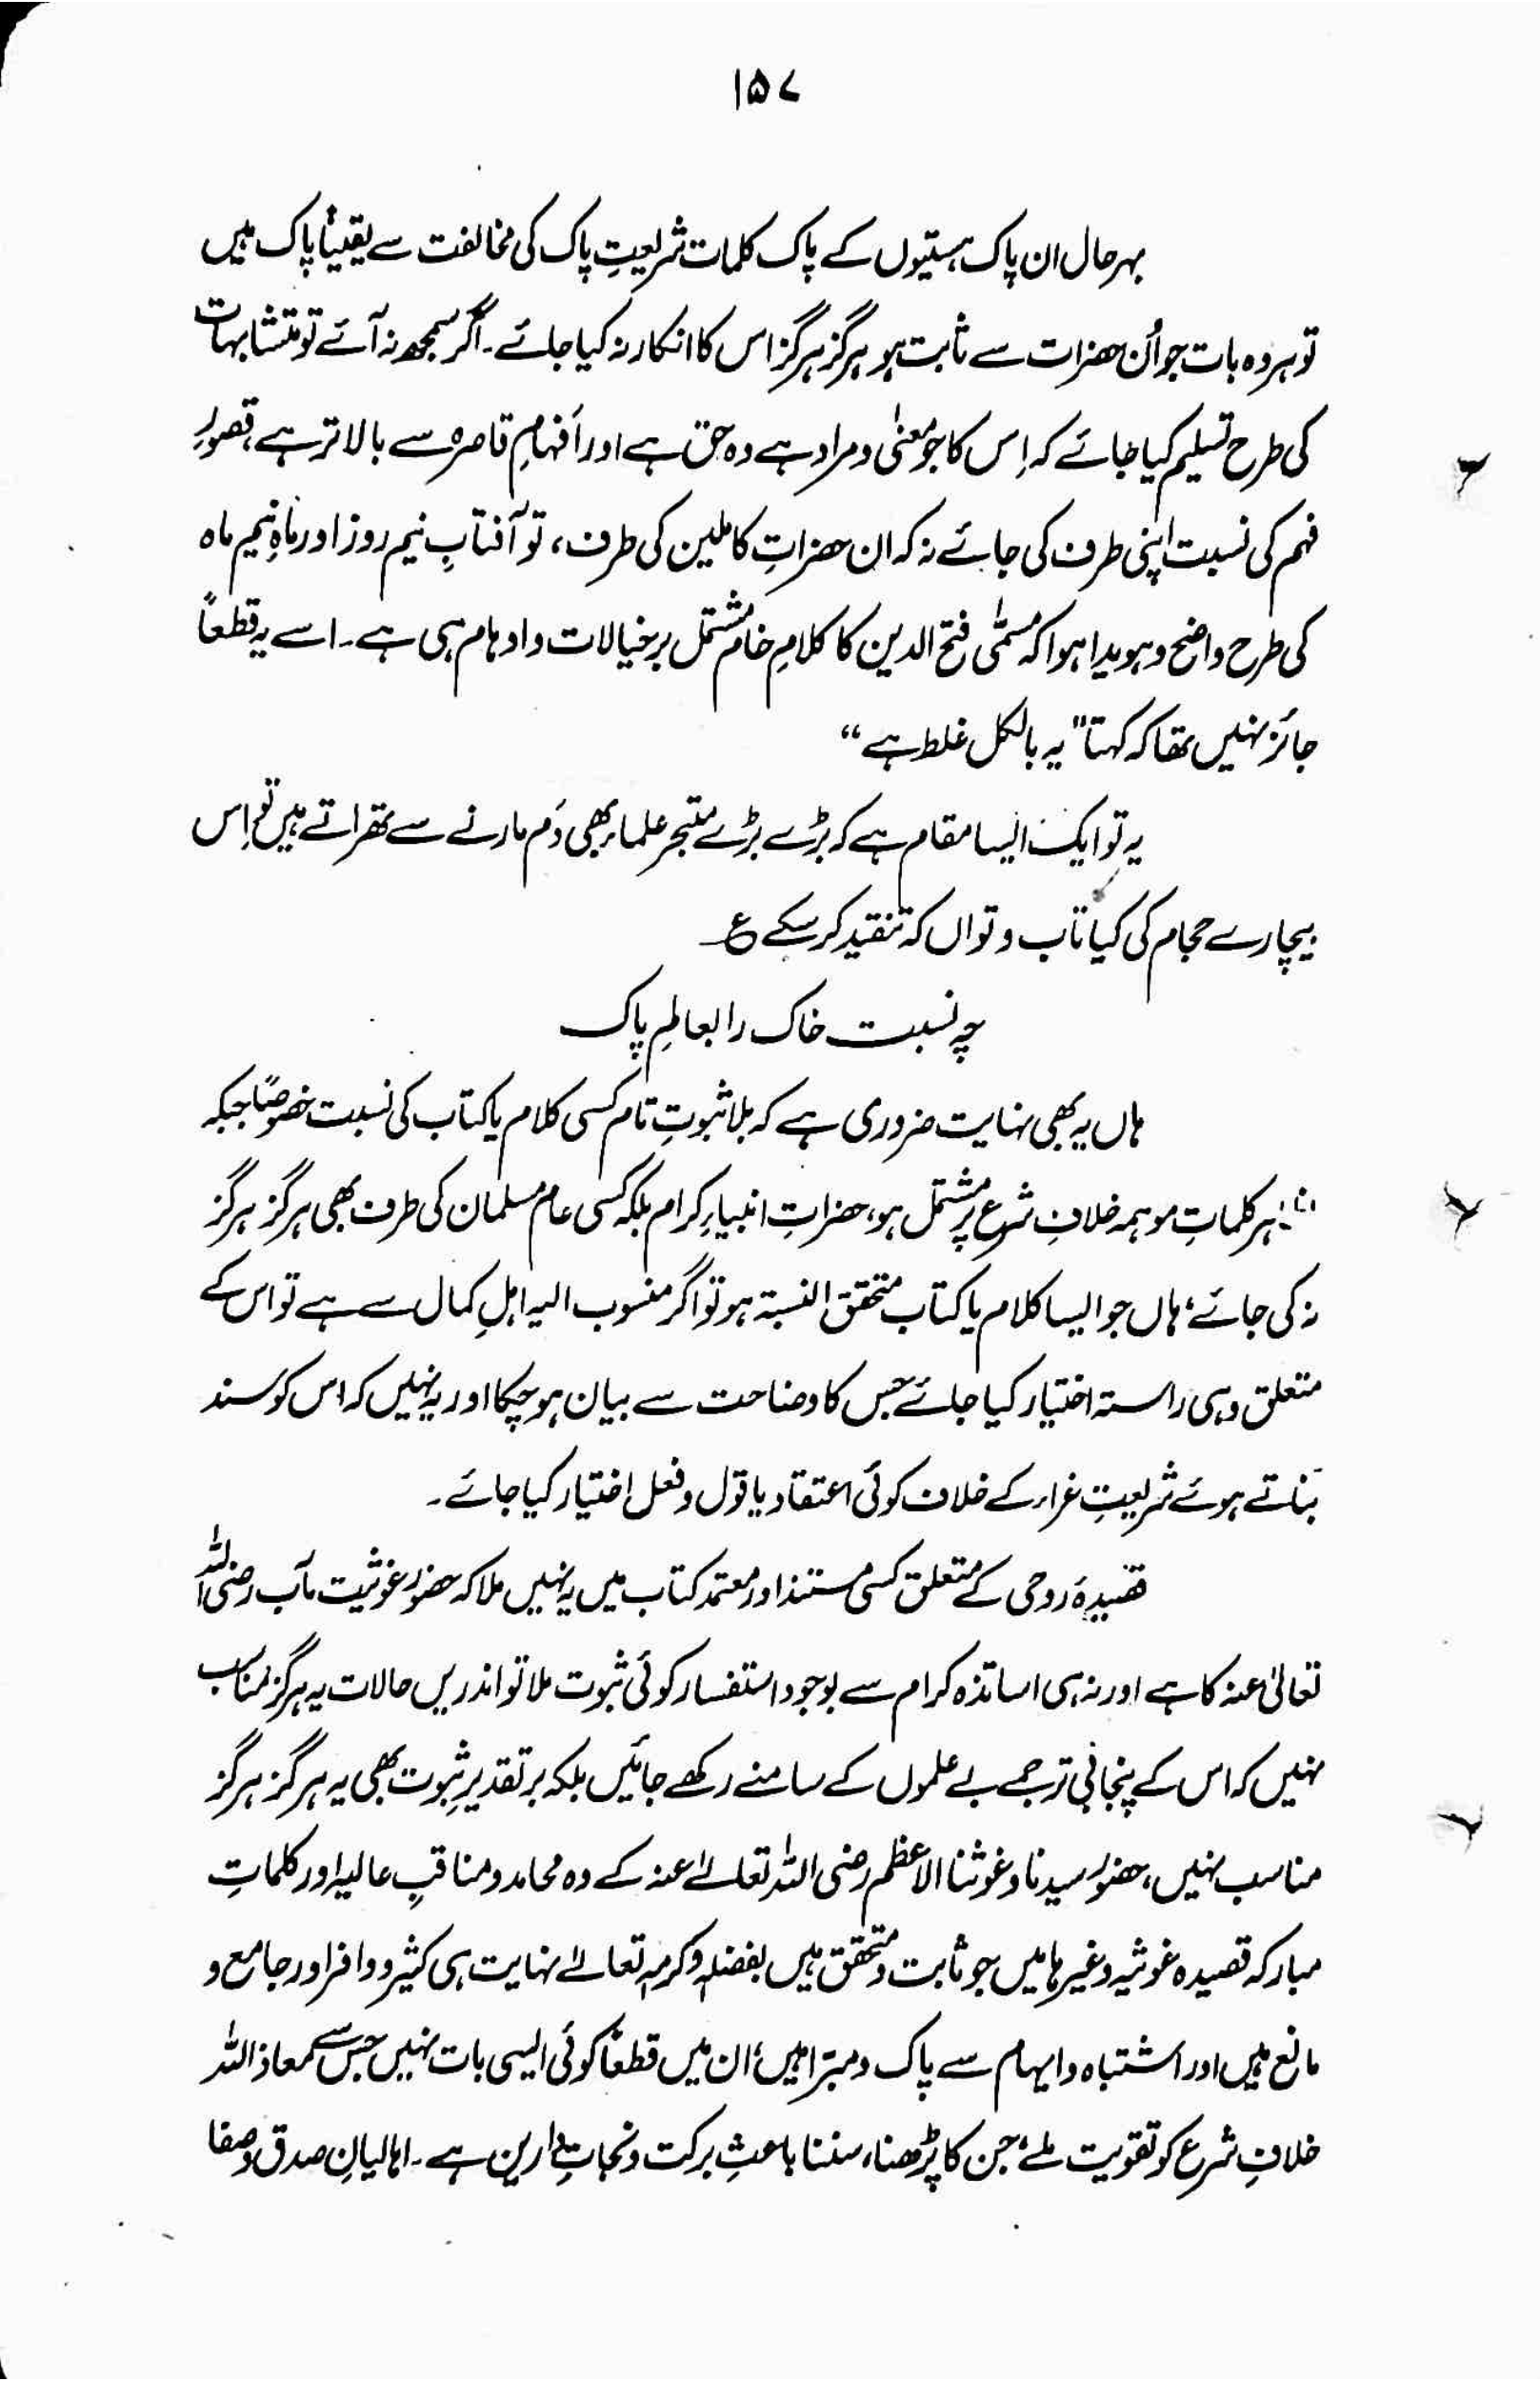 ۱۵۷
بہرحال ان پاک ہستیوں کے پاک کلمات شریعتِ پاک کی مخالفت سے یقیناً پاک ہیں
تو ہر وہ بات جو اُن حضرات سے ثابت ہو ہرگز ہرگز اس کا انکار نہ کیا جائے۔ اگر سمجھ نہ آئے تو متشابہات
کی طرح تسلیم کیا جائے کہ اِس کا جو معنٰی و مراد ہے وہ حق ہے اور اَفہامِ قاصرہ سے بالاتر ہے، قصورِ
فہم کی نسبت اپنی طرف کی جائے نہ کہ ان حضراتِ کاملین کی طرف، تو آفتابِ نیم روز اور ماہِ نیم ماہ
کی طرح واضح و ہویدا ہوا کہ مسمّٰی فتح الدین کا کلامِ خام مشتمل بر خیالات و اوہام ہی ہے۔ اسے یہ قطعاً
جائز نہیں تھا کہ کہتا "یہ بالکل غلط ہے"
یہ تو ایک ایسا مقام ہے کہ بڑے بڑے متبحر علماء بھی دَم مارنے سے تھراتے ہیں تو اِس
بیچارے حجام کی کیا تاب و تواں کہ تنقید کر سکے ع
چہ نسبت خاک را بعالمِ پاک
ہاں یہ بھی نہایت ضروری ہے کہ بلا ثبوتِ تام کسی کلام یا کتاب کی نسبت خصوصًا جبکہ
ہر کلماتِ موہمہ خلافِ شرع پر مشتمل ہو، حضراتِ انبیاءِ کرام بلکہ کسی عام مسلمان کی طرف بھی ہرگز ہرگز
نہ کی جائے، ہاں جو ایسا کلام یا کتاب متحقق النسبۃ ہو تو اگر منسوب الیہ اہلِ کمال سے ہے تو اس کے
متعلق وہی راستہ اختیار کیا جائے جس کا وضاحت سے بیان ہو چکا اور یہ نہیں کہ اس کو سند
بناتے ہوئے شریعتِ غراء کے خلاف کوئی اعتقاد یا قول و فعل اختیار کیا جائے۔
قصیدہ روحی کے متعلق کسی مستند اور معتمد کتاب میں یہ نہیں ملا کہ حضور غوثیت مآب رضی اللہ
تعالیٰ عنہ کا ہے اور نہ ہی اساتذہ کرام سے بوجود استفسار کوئی ثبوت ملا تو اندریں حالات یہ ہرگز مناسب
نہیں کہ اس کے پنجابی ترجمے بے علموں کے سامنے رکھے جائیں بلکہ بر تقدیرِ ثبوت بھی یہ ہرگز ہرگز
مناسب نہیں، حضور سیدنا و غوثنا الاعظم رضی اللہ تعالےٰ عنہ کے وہ محامد و مناقبِ عالیہ اور کلماتِ
مبارکہ قصیدہ غوثیہ وغیرہا میں جو ثابت و متحقق ہیں بفضلہٖ و کرمہٖ تعالےٰ نہایت ہی کثیر و وافر اور جامع و
مانع ہیں اور اشتباہ و ایہام سے پاک و مبرّا ہیں، ان میں قطعاً کوئی ایسی بات نہیں جس سے معاذ اللہ
خلافِ شرع کو تقویت ملے، جن کا پڑھنا، سننا باعثِ برکت و نجاتِ دارین ہے۔ اہالیانِ صدق و صفا